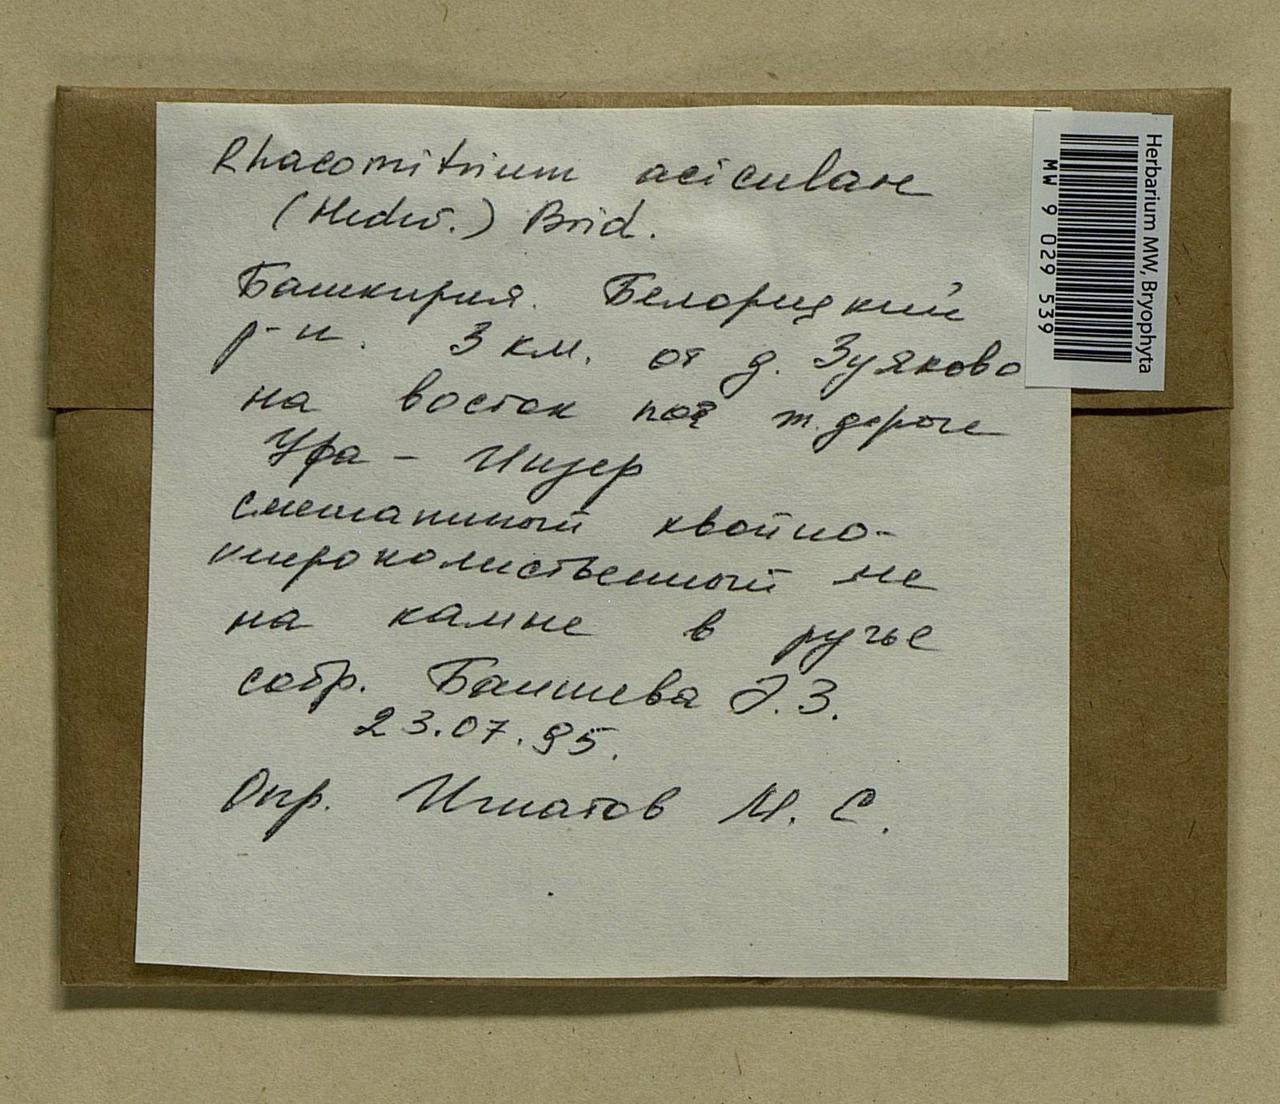 Rhacomitrium aciculare
(Hedw.) Brid.
Башкирия. Белорецкий
р-н. 3 км. от д. Зуяково
на восток по ж. дороге
Уфа - Инзер
смешанный хвойно-
широколиственный лес
на камне в ручье
собр. Баишева Э.З.
23.07.95.
Опр. Игнатов М. С.
Herbarium MW, Bryophyta
MW 9 029 539